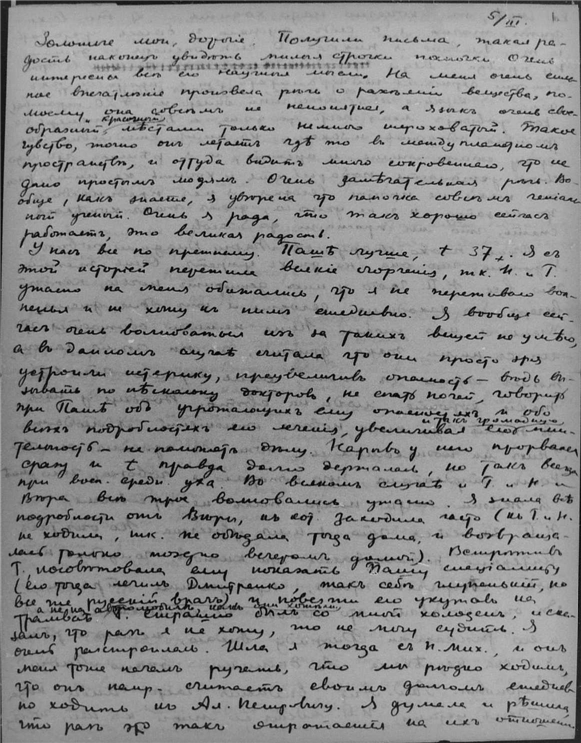 5/III.
Золотые мои, дорогие. Получили письма, такая ра-
дость наконецъ увидѣть милыя строчки папочки. Очень
интересны всѣ его научныя мысли. На меня очень силь-
ное впечатлѣніе произвела рѣчь о вещества, по-
моему она совсѣмъ не непонятная, а языкъ очень свое-
образный, красивый, мѣстами только немного шероховатый. Такое
чувство, точно онъ летаетъ гдѣ то въ междупланетномъ
пространствѣ, и оттуда видитъ много сокровеннаго, что не
дано простымъ людямъ. Очень замѣчательная рѣчь. Во-
обще, какъ знаете, я увѣрена что папочка совсѣмъ геніаль-
ный ученый. Очень я рада, что такъ хорошо сейчасъ
работаетъ, это великая радость.
У насъ все по прежнему. Пашѣ лучше, t 37. Я съ
этой исторіей пережила всякіе огорченія, т.к. Н. и Т.
ужасно на меня обижались, что я не переживаю
и не хожу къ нимъ ежедневно. Я вообще сей-
часъ очень волноваться изъ за такихъ вещей не умѣю,
а въ данномъ случаѣ считала что они просто зря
устроили истерику, преувеличивъ опасность – вѣдь вы-
зывать по нѣсколько докторовъ, не спать ночей, говорить
при Пашѣ объ угрожающихъ ему опасностяхъ и обо
всѣхъ подробностяхъ его леченія, увеличивая и такъ громадную его мни-
тельность – не помогаетъ дѣлу. Нарывъ у него прорвался
сразу и t правда долго держалась, но такъ всегда
при восп. средн. уха. Во всякомъ случаѣ и Т. и Н. и
Вѣра всѣ трое волновались ужасно. Я знала всѣ
подробности отъ Вѣры, къ кот. заходила часто (къ Т. и Н.
не ходила, т.к. не обѣдала тогда дома, и возвраща-
лась только поздно вечеромъ домой). Встрѣтивъ
Т. посовѣтовала ему показать Пашу спеціалисту
(его тогда лечилъ Дмитренко, такъ себѣ, но
все же русскій врачъ) и повезти его укутавъ на
трамваѣ, а не на автомобилѣ какъ они хотѣли. Страшно былъ со мной холоденъ, и ска-
залъ, что разъ я не хожу, то не могу судить. Я
очень разстроилась. Шла я тогда съ Н. Мих., и онъ
меня тоже началъ ругать, что мы рѣдко ходимъ,
что онъ напр. считаетъ своимъ долгомъ ежеднев-
но ходить къ Ал. Петровичу. Я думала и рѣшила,
что разъ это такъ отражается на ихъ отношеніи